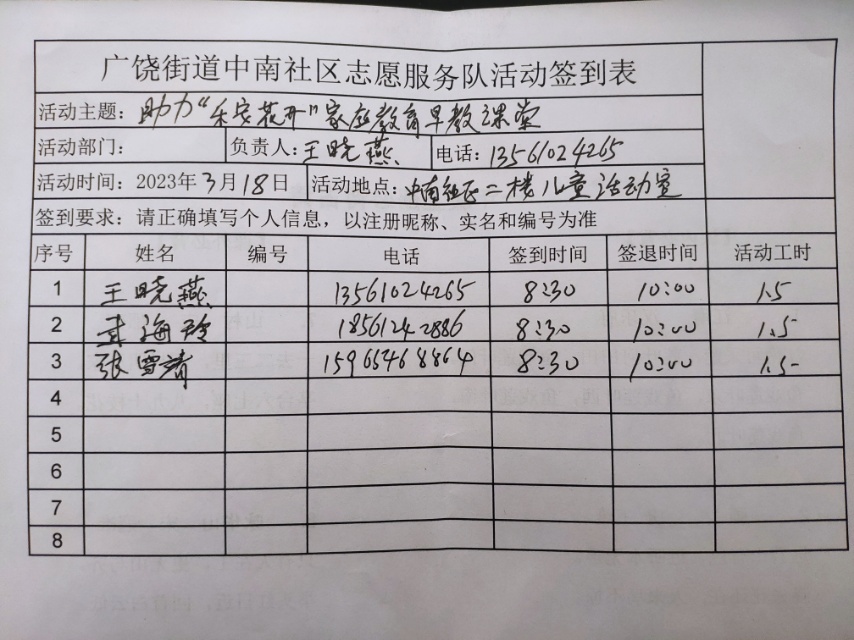 广饶街道中南社区志愿服务队活动签到表
活动主题：助力“乐安花开”家庭教育早教课堂
活动部门： 负责人：王晓燕 电话：13561024265
活动时间：2023年3月18日 活动地点：中南社区二楼儿童活动室
签到要求：请正确填写个人信息，以注册昵称、实名和编号为准
序号 姓名 编号 电话 签到时间 签退时间 活动工时
1 王晓燕 13561024265 8:30 10:00 1.5
2 海玲 18561242886 8:30 10:00 1.5
3 张雪清 15965468864 8:30 10:00 1.5
4
5
6
7
8